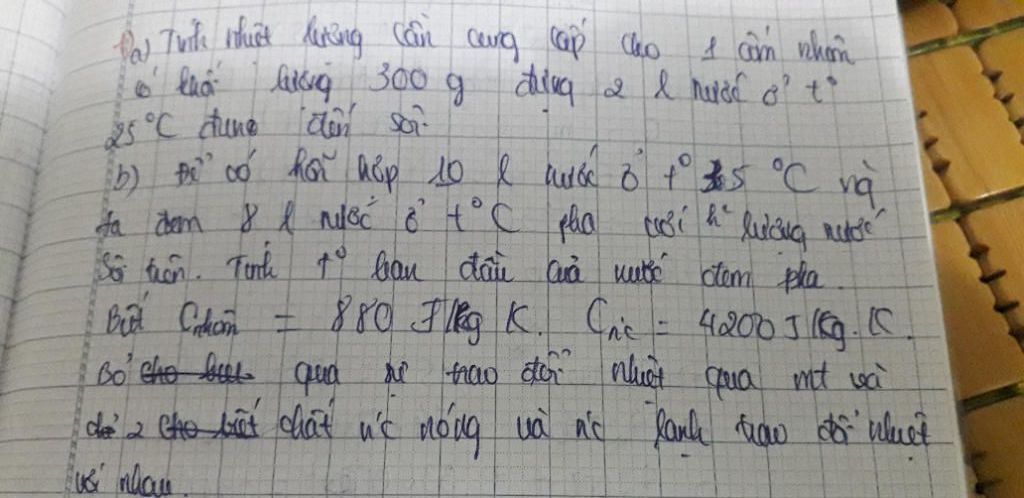 a) Tính nhiệt lượng cần cung cấp cho 1 ấm nhôm
có khối lượng 300 g đựng 2 l nước ở t°
25°C đun đến sôi.
b) Để có hỗn hợp 10 l nước ở t° 5 °C
ta đem 8 l nước ở t°C pha với lượng nước
sôi trên. Tính t° ban đầu của nước đem pha.
Biết Cnhôm = 880 J/kg K. Cnc = 4200 J/kg.K.
Bỏ qua sự trao đổi nhiệt qua mt và
2 chất nc nóng và nc lạnh trao đổi nhiệt
với nhau.